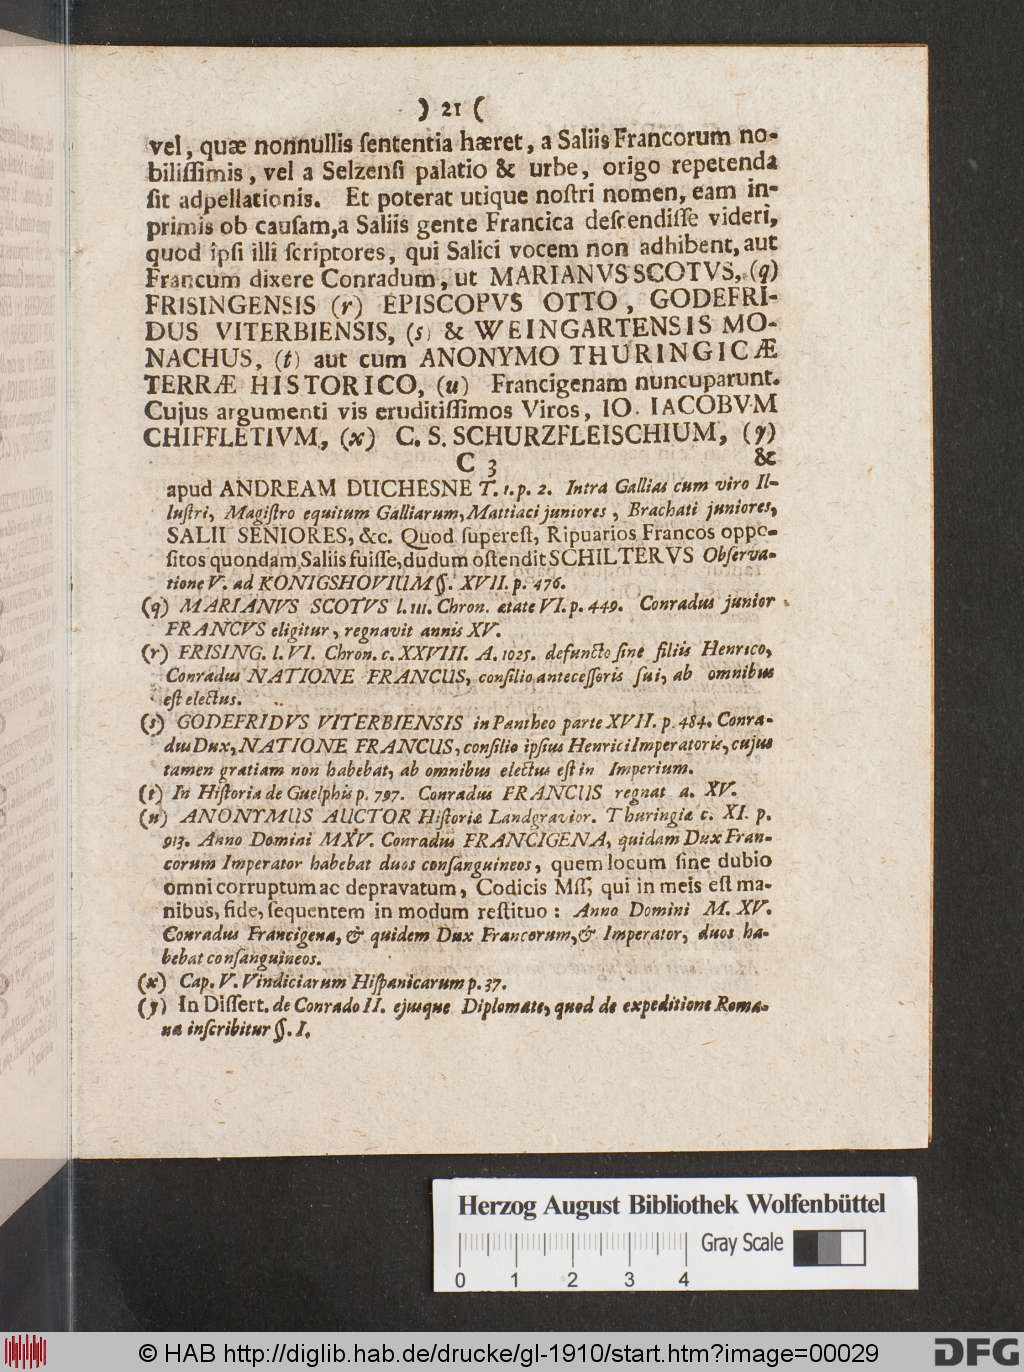 ) 21 (
vel, quæ nonnullis ſententia hæret, a Saliis Francorum no-
biliſſimis, vel a Selzenſi palatio & urbe, origo repetenda
ſit adpellationis. Et poterat utique noſtri nomen, eam in-
primis ob cauſam, a Saliis gente Francica deſcendiſſe videri,
quod ipſi illi ſcriptores, qui Salici vocem non adhibent, aut
Francum dixere Conradum, ut MARIANVS SCOTVS, (q)
FRISINGENSIS (r) EPISCOPVS OTTO, GODEFRI-
DUS VITERBIENSIS, (s) & WEINGARTENSIS MO-
NACHUS, (t) aut cum ANONYMO THURINGICÆ
TERRÆ HISTORICO, (u) Francigenam nuncuparunt.
Cujus argumenti vis eruditiſſimos Viros, IO. IACOBVM
CHIFFLETIVM, (x) C. S. SCHURZFLEISCHIUM, (y)
C 3 &
apud ANDREAM DUCHESNE T. 1. p. 2. Intra Gallias cum viro Il-
luſtri, Magiſtro equitum Galliarum, Mattiaci juniores, Brachati juniores,
SALII SENIORES, &c. Quod ſupereſt, Ripuarios Francos oppo-
ſitos quondam Saliis fuiſſe, dudum oſtendit SCHILTERVS Obſerva-
tione V. ad KÖNIGSHOVIUM §. XVII. p. 476.
(q) MARIANVS SCOTVS l. III. Chron. ætate VI. p. 449. Conradus junior
FRANCVS eligitur, regnavit annis XV.
(r) FRISING. l. VI. Chron. c. XXVIII. A. 1025. defuncto ſine filiis Henrico,
Conradus NATIONE FRANCUS, conſilio anteceſſoris ſui, ab omnibus
eſt electus.
(s) GODEFRIDVS VITERBIENSIS in Pantheo parte XVII. p. 484. Conra-
dus Dux, NATIONE FRANCUS, conſilio ipſius Henrici Imperatoris, cujus
tamen gratiam non habebat, ab omnibus electus eſt in Imperium.
(t) In Hiſtoria de Guelphis p. 797. Conradus FRANCUS regnat a. XV.
(u) ANONYMUS AUCTOR Hiſtoriæ Landgravior. Thuringiæ c. XI. p.
913. Anno Domini MXV. Conradus FRANCIGENA, quidam Dux Fran-
corum Imperator habebat duos conſanguineos, quem locum ſine dubio
omni corruptum ac depravatum, Codicis Mſſ, qui in meis eſt ma-
nibus, fide, ſequentem in modum reſtituo: Anno Domini M. XV.
Conradus Francigena, & quidem Dux Francorum, & Imperator, duos ha-
bebat conſanguineos.
(x) Cap. V. Vindiciarum Hiſpanicarum p. 37.
(y) In Diſſert. de Conrado II. ejusque Diplomate, quod de expeditione Roma-
na inſcribitur §. I.
Herzog August Bibliothek Wolfenbüttel
Gray Scale
0 1 2 3 4
© HAB http://diglib.hab.de/drucke/gl-1910/start.htm?image=00029
DFG